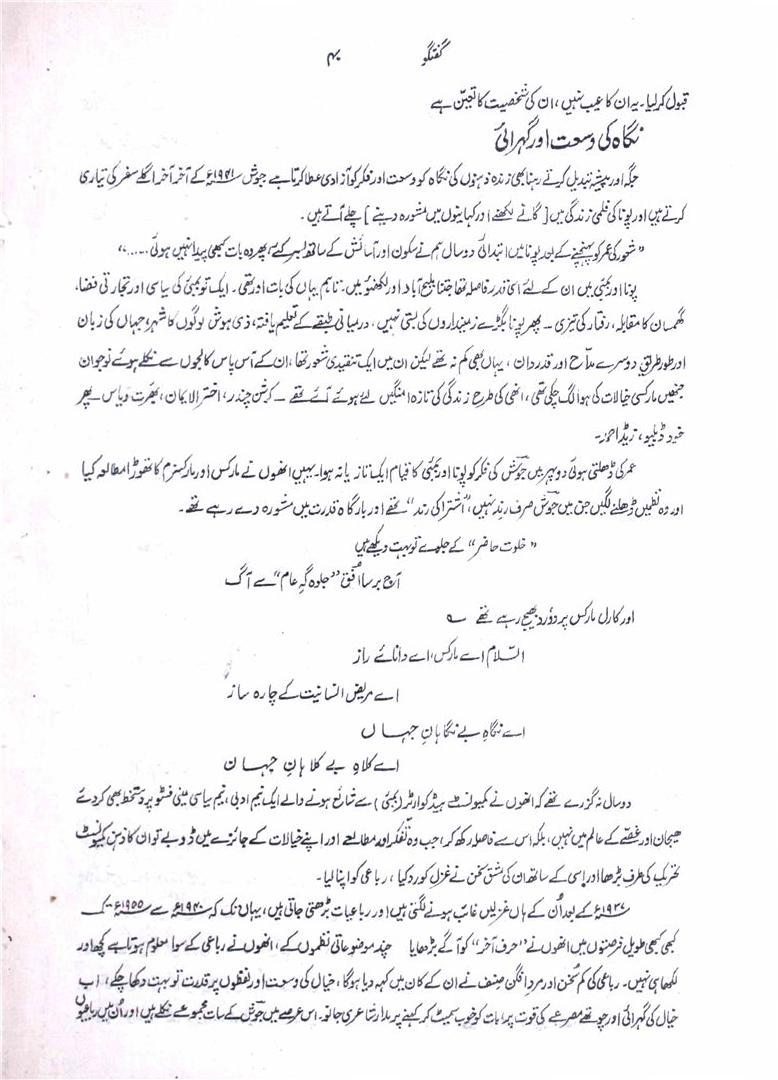 گفتگو ۴۰
قبول کر لیا۔ یہ ان کا عیب نہیں، ان کی شخصیت کا تعین ہے
نگاہ کی وسعت اور گہرائی
جگہ اور پیشہ تبدیل کرتے رہنا بھی زندہ ذہنوں کی نگاہ کو وسعت اور فکر کو آزادی عطا کرتا ہے جوش ۱۹۴۱ء کے آخر آخر اگلے سفر کی تیاری
کرتے ہیں اور پونا کی فلمی زندگی میں [گانے لکھنے اور کہانیوں میں مشورہ دینے] چلے آتے ہیں۔
”شعور کی عمر کو پہنچنے کے بعد پونا میں ابتدائی دو سال ہم نے سکون اور آسائش کے ساتھ بسر کئے، پھر وہ بات کبھی پیدا نہیں ہوئی......“
پونا اور بمبئی میں ان کے لئے اسی قدر فاصلہ تھا جتنا ملیح آباد اور لکھنؤ میں۔ تاہم یہاں کی بات اور تھی۔ ایک تو بمبئی کی سیاسی اور تجارتی فضا،
گھمسان کا مقابلہ، رفتار کی تیزی — پھر پونا بگڑے زمینداروں کی بستی نہیں، درمیانی طبقے کے تعلیم یافتہ، ذی ہوش لوگوں کا شہر؛ جہاں کی زبان
اور طور طریق دوسرے مداح اور قدر دان، یہاں بھی کم نہ تھے لیکن ان میں ایک تنقیدی شعور تھا، ان کے آس پاس کالجوں سے نکلے ہوئے نوجوان
جنھیں مارکسی خیالات کی ہوا لگ چکی تھی، انھی کی طرح زندگی کی تازہ امنگیں لئے ہوئے آئے تھے — کرشن چندر، اختر الایمان، بھرت ویاس — پھر
خود ڈبلیو، زیڈ احمد۔
عمر کی ڈھلتی ہوئی دوپہر میں جوش کی فکر کو پونا اور بمبئی کا قیام ایک تازیانہ ہوا۔ یہیں انھوں نے مارکس اور مارکسزم کا تھوڑا مطالعہ کیا
اور وہ نظمیں ڈھلنے لگیں جن میں جوش صرف رند نہیں، ”اشتراکی رند“ تھے اور بارگاہ قدرت میں مشورہ دے رہے تھے۔
”خلوت حاضر“ کے جلوے تو بہت دیکھے ہیں
آج برسا افق ”جلوہ گہِ عام“ سے آگ
اور کارل مارکس پر درود بھیج رہے تھے ؎
السّلام اے مارکس، اے دانائے راز
اے مریض انسانیت کے چارہ ساز
اے نگاہِ بے نگاہانِ جہاں
اے کلاہِ بے کلاہانِ جہان
دو سال نہ گزرے تھے کہ انھوں نے کمیونسٹ ہیڈ کوارٹر (بمبئی) سے شائع ہونے والے ایک نیم ادبی، نیم سیاسی مینی فسٹو پر دستخط بھی کر دئے
ہیجان اور غصے کے عالم میں نہیں، بلکہ اس سے فاصلہ رکھ کر، جب وہ تفکر اور مطالعے اور اپنے خیالات کے جائزے میں ڈوبے تو ان کا ذہن کمیونسٹ
تحریک کی طرف بڑھا اور اسی کے ساتھ ان کی مشق سخن نے غزل کو رد کیا، رباعی کو اپنا لیا۔
۱۹۳۷ء کے بعد اُن کے ہاں غزلیں غائب ہونے لگتی ہیں اور رباعیات بڑھتی جاتی ہیں، یہاں تک کہ ۱۹۴۰ء سے ۱۹۵۵ء تک
کبھی کبھی طویل فرصتوں میں انھوں نے ”حرف آخر“ کو آگے بڑھایا چند موضوعاتی نظموں کے، انھوں نے رباعی کے سوا معلوم ہوتا ہے کچھ اور
لکھا ہی نہیں۔ رباعی کی کم سخن اور مرد افگن صنف نے ان کے کان میں کہہ دیا ہوگا، خیال کی وسعت اور لفظوں پر قدرت تو بہت دکھا چکے، اب
خیال کی گہرائی اور چوتھے مصرعے کی قوت پر بات کو خوب سمیٹ کر کہنے پر مدار شاعری جانو۔ اس عرصے میں جوش کے سات مجموعے نکلے ہیں اور اُن میں رباعیوں